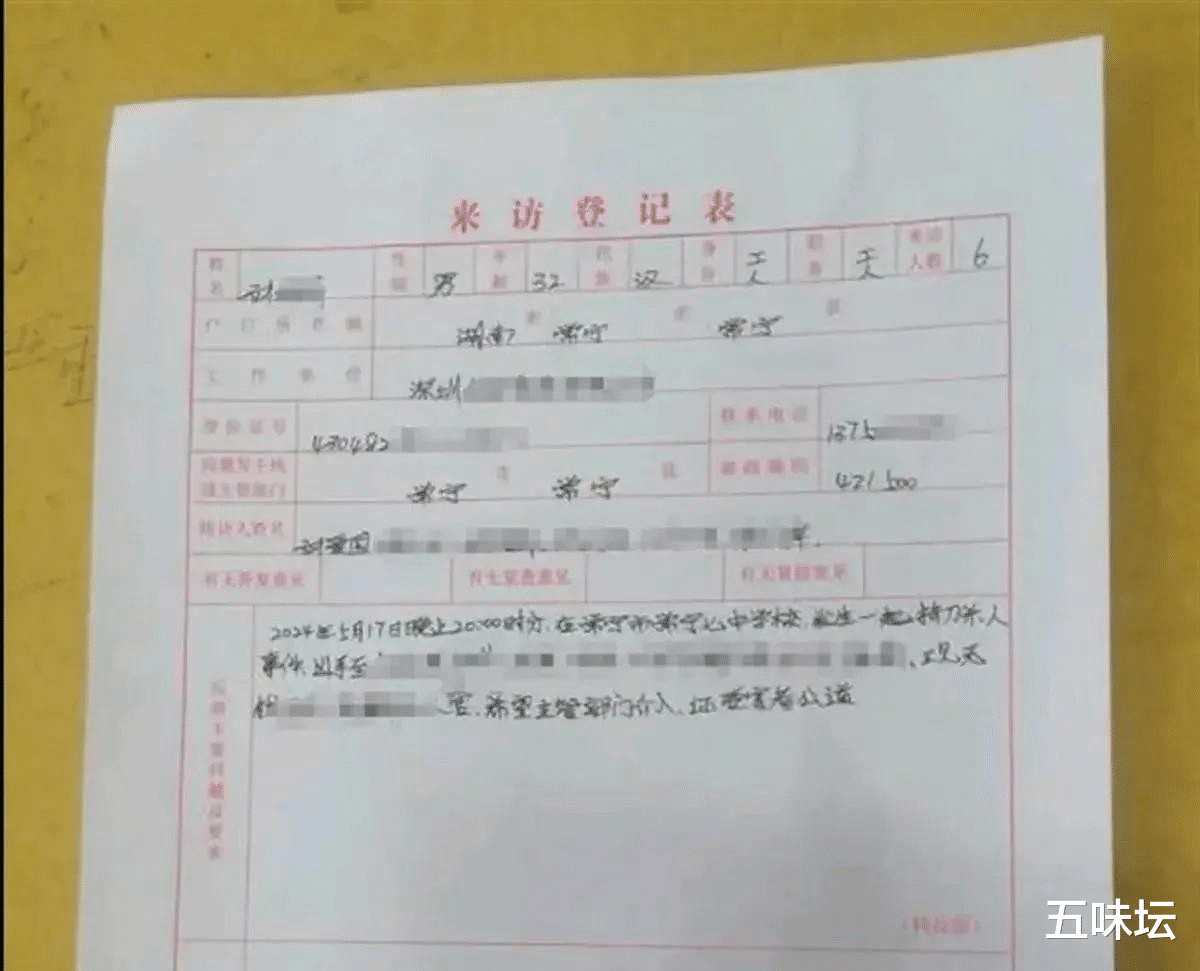 来访登记表
姓名 性别 男 年龄 32 民族 汉 身份 工人 职务 工人 来访人数 6
户口所在地 湖南 省 常宁 市 常宁 县
工作单位 深圳
身份证号 430482 联系电话 1375
市 常宁 县 常宁 邮政编码 421500
随访人姓名
有无答复意见 有无复查意见 有无复核意见
2024年5月17日晚上20:00时分,在常宁市常宁 中学校,发生一起持刀杀人
事件,凶手至
害,希望主管部门介入,还受害者公道
反映主要问题及要求
(转反面)
五味坛